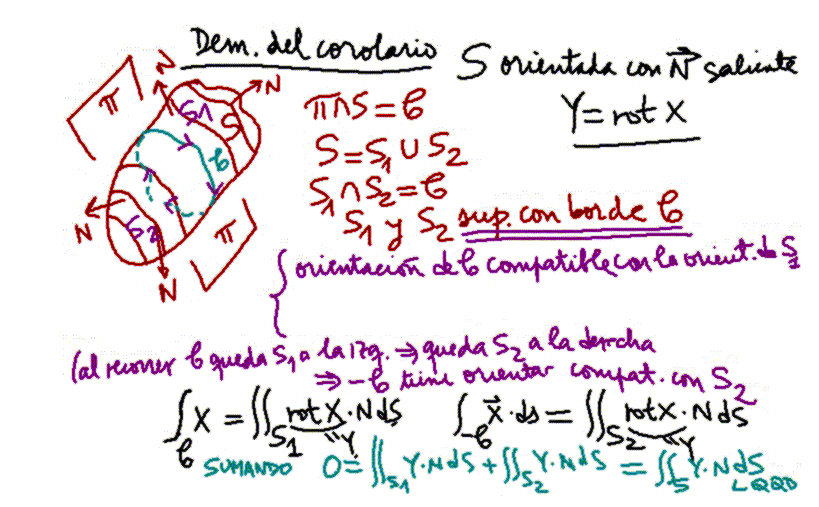 Dem. del corolario
S orientada con N⃗ saliente
Y = rot X
π∩S = C
S = S₁ ∪ S₂
S₁ ∩ S₂ = C
S₁ y S₂ sup. con borde C
π
N
N
S1
S
C
N
S2
π
N
orientación de C compatible con la orient. de S₁
(al recorrer C queda S₁ a la izq. ⇒ queda S₂ a la derecha
⇒ -C tiene orientar compat. con S₂
∫_C X = ∬_S₁ rot X · N dS ∫_-C X⃗ · ds = ∬_S₂ rot X · N dS
"Y "Y
SUMANDO 0 = ∬_S₁ Y·N dS + ∬_S₂ Y·N dS = ∬_S Y·N dS
LQQD